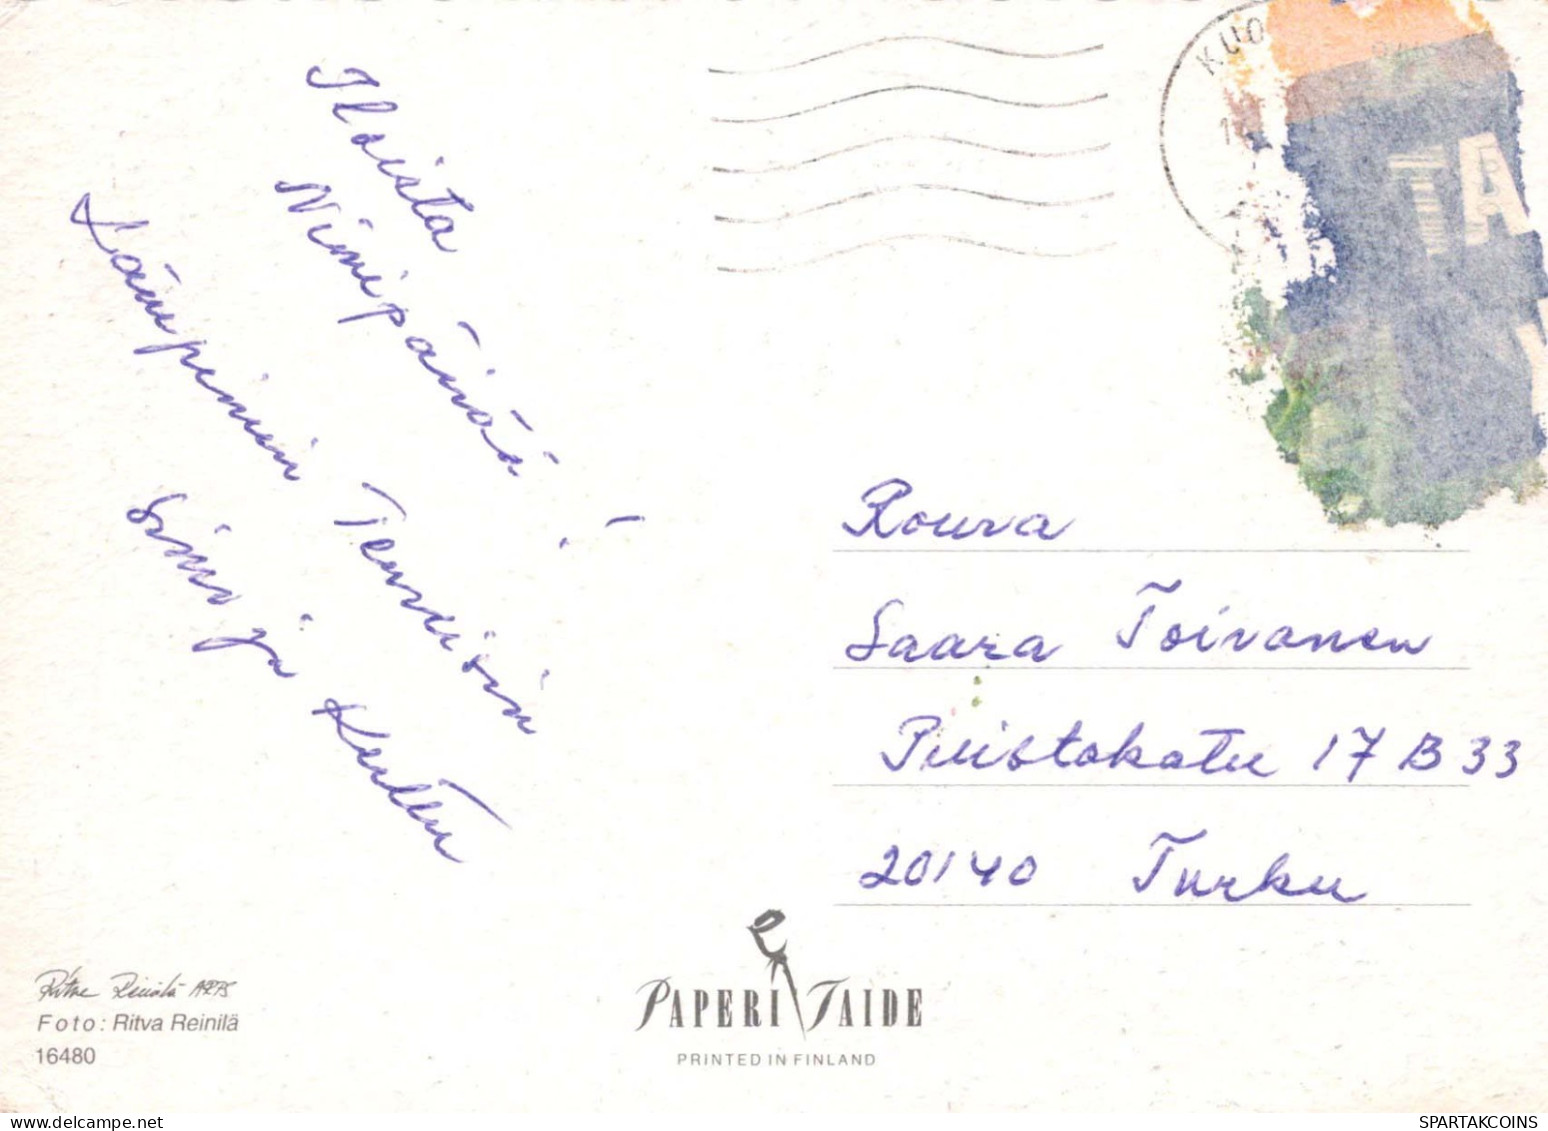 Iloista
Nimipäivää!
Lämpimin Terveisin
Simo ja Kerttu
KUO
TA
Rouva
Saara Toivanen
Puistokatu 17 B 33
20140 Turku
Ritva Reinilä ARPS
Foto: Ritva Reinilä
16480
PAPERI TAIDE
PRINTED IN FINLAND
www.delcampe.net
SPARTAKCOINS